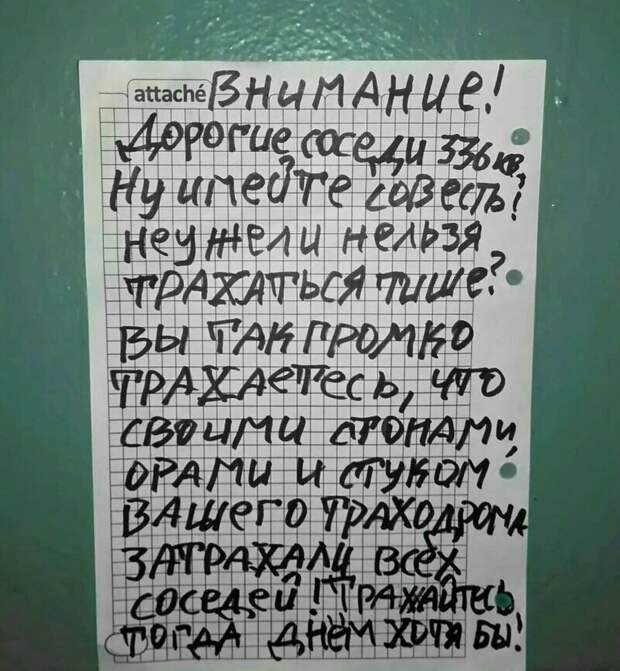 attaché ВНИМАНИЕ!
ДОРОГИЕ СОСЕДИ 336 КВ,
НУ ИМЕЙТЕ СОВЕСТЬ!
НЕУЖЕЛИ НЕЛЬЗЯ
ТРАХАТЬСЯ ТИШЕ?
ВЫ ТАК ГРОМКО
ТРАХАЕТЕСЬ, ЧТО
СВОИМИ СТОНАМИ,
ОРАМИ И СТУКОМ
ВАШЕГО ТРАХОДРОМА
ЗАТРАХАЛИ ВСЕХ
СОСЕДЕЙ! ТРАХАЙТЕСЬ
ТОГДА ДНЁМ ХОТЯ БЫ!